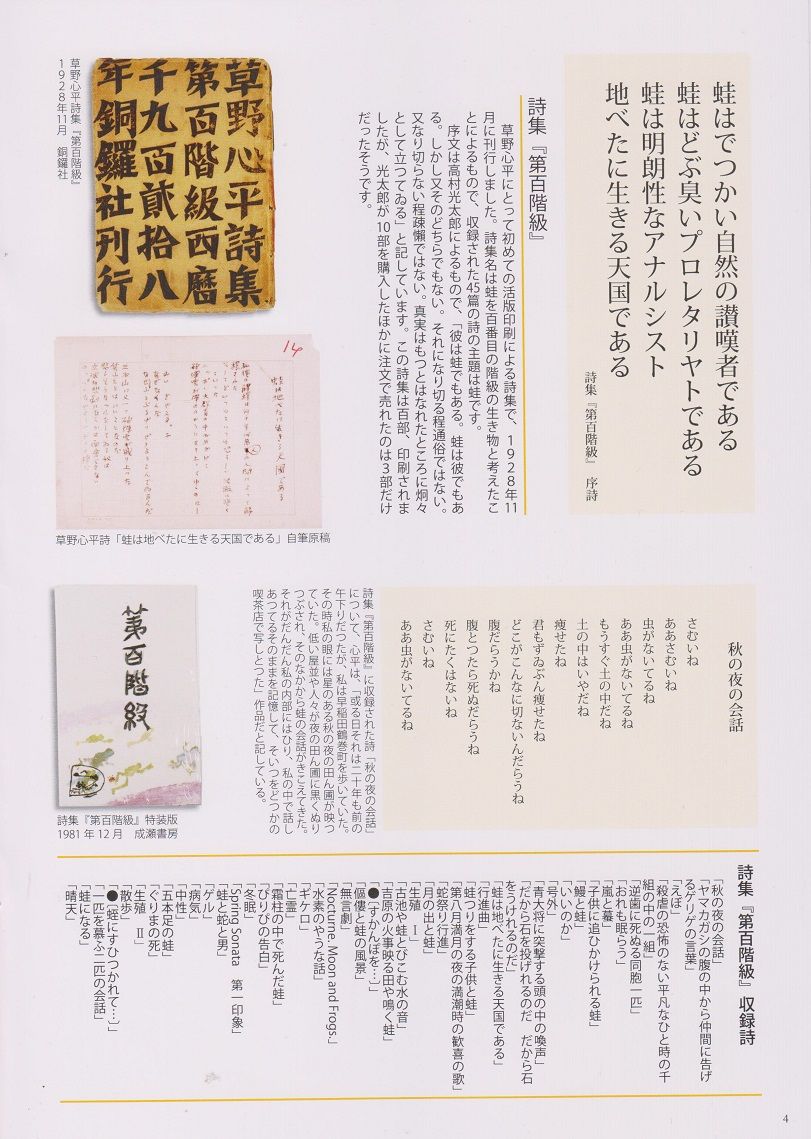 蛙はでつかい自然の讃嘆者である
蛙はどぶ臭いプロレタリヤトである
蛙は明朗性なアナルシスト
地べたに生きる天国である
詩集『第百階級』 序詩
詩集『第百階級』
草野心平にとって初めての活版印刷による詩集で、1928年11
月に刊行しました。詩集名は蛙を百番目の階級の生き物と考えたこ
とによるもので、収録された45篇の詩の主題は蛙です。
序文は高村光太郎によるもので、「彼は蛙でもある。蛙は彼でもあ
る。しかし又そのどちらでもない。それになり切る程通俗ではない。
又なり切らない程疎懶ではない。真実はもつとはなれたところに炯々
として立つてゐる」と記しています。この詩集は百部、印刷されま
したが、光太郎が10部を購入したほかに注文で売れたのは3部だけ
だったそうです。
草野心平詩集
第百階級西暦
千九百貳拾八
年銅鑼社刊行
草野心平詩集『第百階級』
1928年11月 銅鑼社
14
蛙は地べたに生きる天国である
草野心平詩「蛙は地べたに生きる天国である」自筆原稿
秋の夜の会話
さむいね
ああさむいね
虫がないてるね
ああ虫がないてるね
もうすぐ土の中だね
土の中はいやだね
痩せたね
君もずゐぶん痩せたね
どこがこんなに切ないんだらうね
腹だらうかね
腹とつたら死ぬだらうね
死にたくはないね
さむいね
ああ虫がないてるね
詩集『第百階級』に収録された詩「秋の夜の会話」
について、心平は、「或る日それは二十年も前の
午下りだつたが、私は早稲田鶴巻町を歩いていた。
その時私の眼には星のある秋の夜の田ん圃が映つ
ていた。低い屋並や人々が夜の田ん圃に黒くぬり
つぶされ、そのなかから蛙の会話がきこえてきた。
それがだんだん私の内部にはひり、私の中で話し
あつてるそのままを記憶して、そいつをどつかの
喫茶店で写しとつた」作品だと記している。
第百階級
詩集『第百階級』特装版
1981年12月 成瀬書房
詩集『第百階級』収録詩
「秋の夜の会話」
「ヤマカガシの腹の中から仲間に告げ
るゲリゲの言葉」
「えぼ」
「殺虐の恐怖のない平凡なひと時の千
組の中の一組」
「逆歯に死ぬる同胞一匹」
「おれも眠らう」
「嵐と蟇」
「子供に追ひかけられる蛙」
「鰻と蛙」
「いいのか」
「号外」
「青大将に突撃する頭の中の喚声」
「だから石を投げれるのだ だから石
をうけれるのだ」
「蛙は地べたに生きる天国である」
「行進曲」
「蛙つりをする子供と蛙」
「第八月満月の夜の満潮時の歓喜の歌」
「蛇祭り行進」
「月の出と蛙」
「生殖 Ⅰ」
「古池や蛙とびこむ水の音」
「吉原の火事映る田や鳴く蛙」
●〔すかんぽを…〕」
「傴僂と蛙の風景」
「無言劇」
「Nocturne. Moon and Frogs.」
「水素のやうな話」
「ギケロ」
「亡霊」
「霜柱の中で死んだ蛙」
「ぴりぴの告白」
「冬眠」
「Spring Sonata 第一印象」
「蛙と蛇と男」
「ゲル」
「病気」
「中性」
「五本足の蛙」
「ぐりまの死」
「生殖 Ⅱ」
「散歩」
●〔蛭にすひつかれて…〕」
「一匹を慕ふ二匹の会話」
「蛙になる」
「晴天」
4